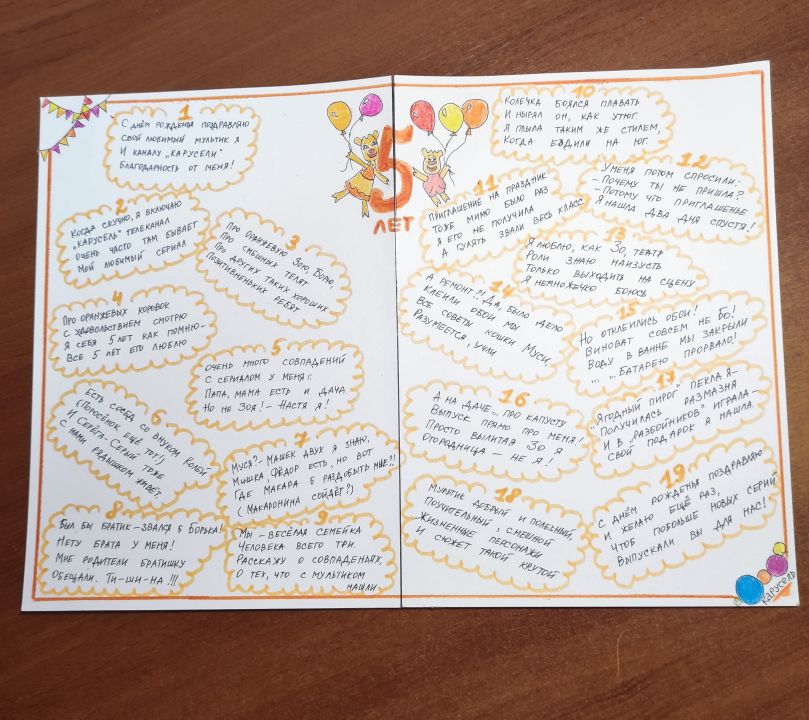 1
С днём рожденья поздравляю
Свой любимый мультик я
И каналу „Карусели"
Благодарность от меня!
2
Когда скучно, я включаю
„Карусель" телеканал
Очень часто там бывает
Мой любимый сериал
3
Про оранжевую Зою, Борю,
Про смешных телят
Про других таких хороших
Позитивненьких ребят
4
Про оранжевых коровок
С удовольствием смотрю
Я себя 5 лет как помню –
Все 5 лет его люблю
5
Очень много совпадений
С сериалом у меня:
Папа, мама есть и дача
Но не Зоя! – Настя я!
6
Есть сосед со внуком Колей
(Поросёнок ещё тот!)
И Серёга-Серый тоже
С нами рядышком живёт.
7
Муся? – Машек двух я знаю,
Мишка, Фёдор есть, но вот
Где Макара б раздобыть мне?!
(Макаронина сойдёт?)
8
Был бы братик – звался б Борька!
Нету брата у меня!
Мне родители братишку
Обещали. Ти-ши-на!!!
9
Мы – весёлая семейка
Человека всего три.
Расскажу о совпаденьях,
О тех, что с мультиком
нашли
5
ЛЕТ
10
Колечка боялся плавать
И нырял он, как утюг.
Я плыла таким же стилем,
Когда ездили на юг.
11
Приглашение на праздник
Тоже мимо было раз
Я его не получила
А гулять звали весь класс
12
Уменя потом спросили:
– Почему ты не пришла?
– Потому что приглашенье
Я нашла два дня спустя!
13
Я люблю, как Зо, театр
Роли знаю наизусть
Только выходить на сцену
Я немножечко боюсь
14
А ремонт?! Да, было дело
Клеили обои мы
Все советы кошки Муси,
Разумеется, учли
15
Но отклеились обои!
Виноват совсем не Бо!
Воду в ванне мы закрыли
... ... Батарею прорвало!
16
А на даче... про капусту
Выпуск прямо про меня!
Просто вылитая Зо я
Огородница – не я!
17
„Ягодный пирог" пекла я –
Получилась размазня
И в „разбойников" играла –
Свой подарок я нашла.
18
Мультик добрый и полезный,
Поучительный, смешной
Жизненные персонажи
И сюжет такой крутой
19
С днём рожденья поздравляю
И желаю ещё раз,
Чтоб побольше новых серий
Выпускали вы для нас!
Карусель